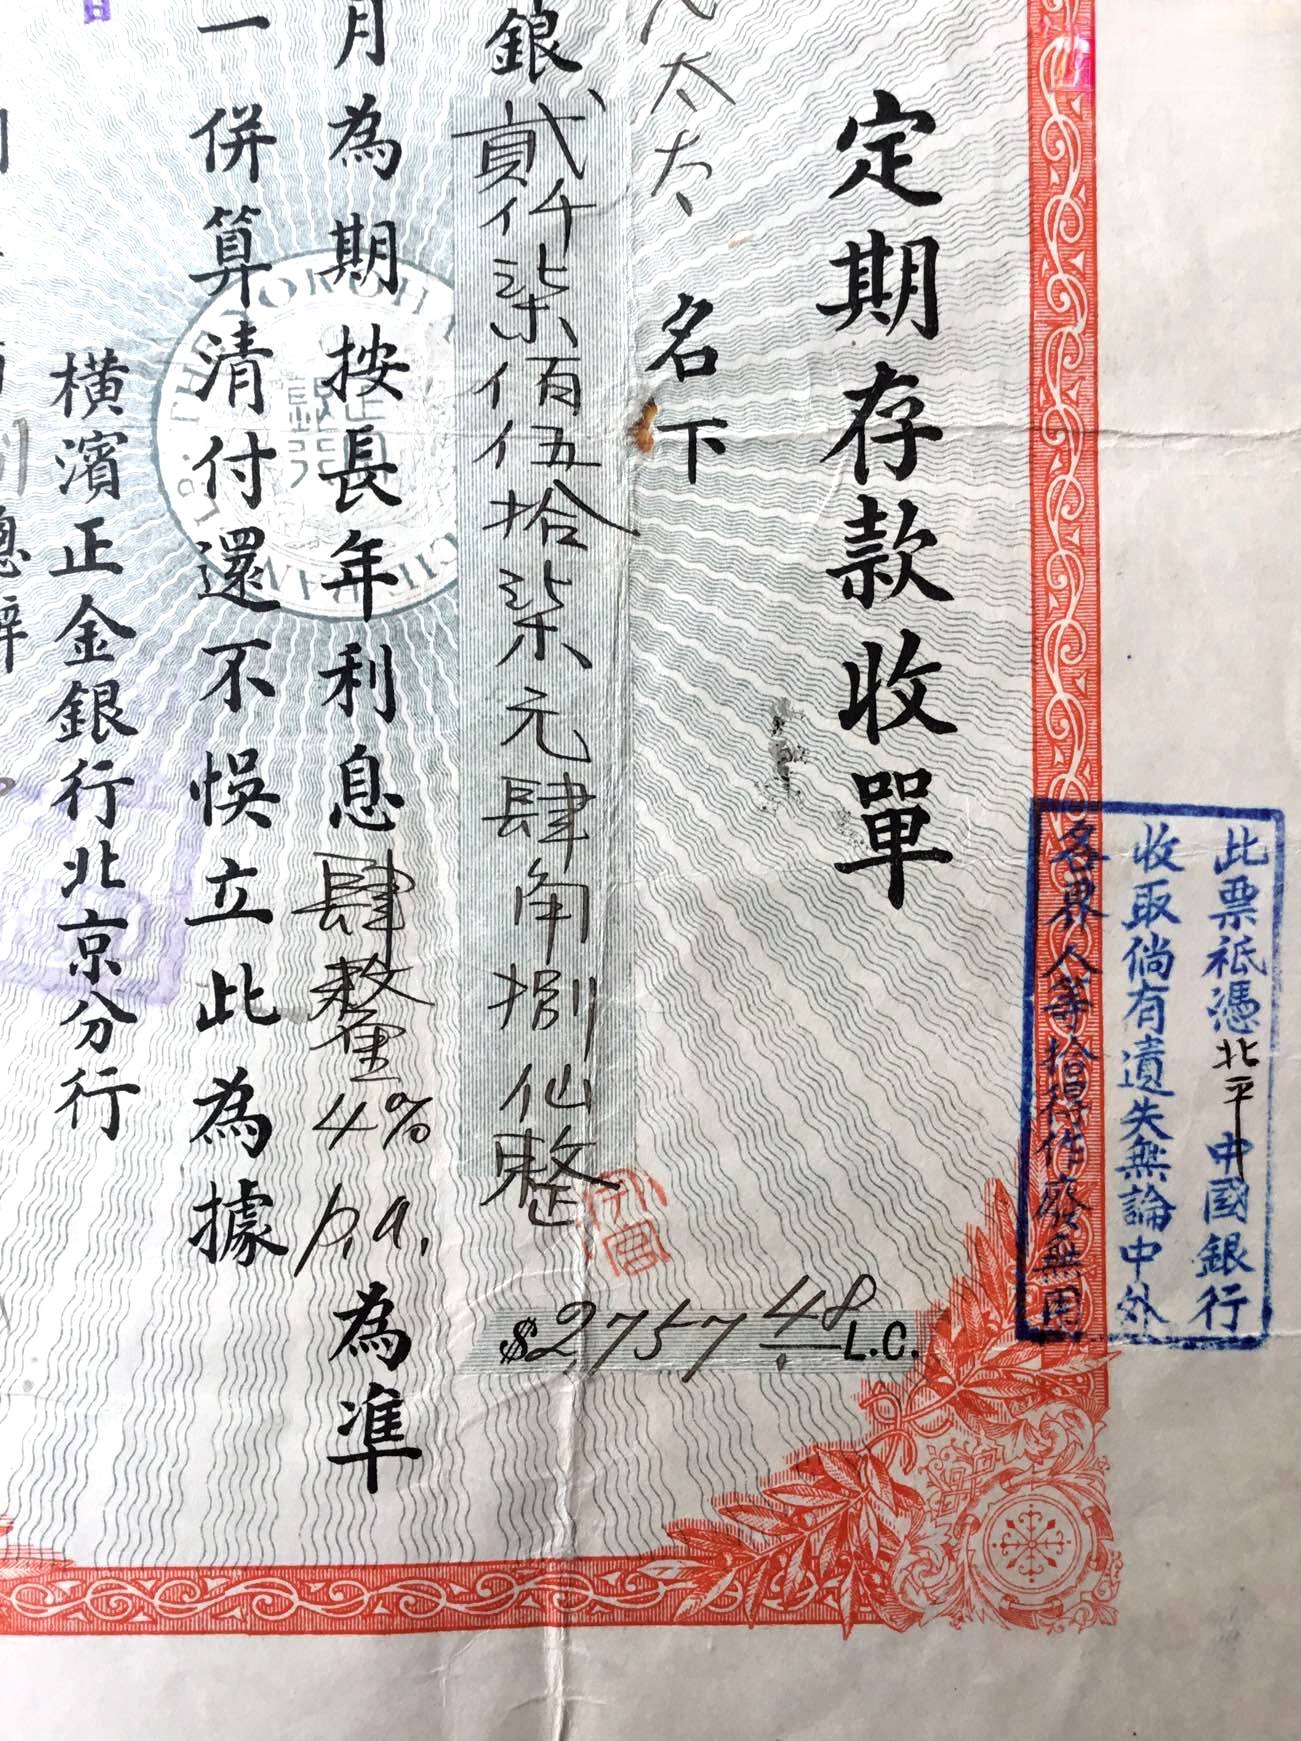 此票祗憑北平中國銀行
收取倘有遺失無論中外
各界人等拾得作廢無用
定期存款收單
太太 名下
銀貳仟柒佰伍拾柒元肆角捌仙整
$2,757.48 L.C.
月為期按長年利息肆整 4% p.a. 為準
一併算清付還不悞立此為據
橫濱正金銀行北京分行